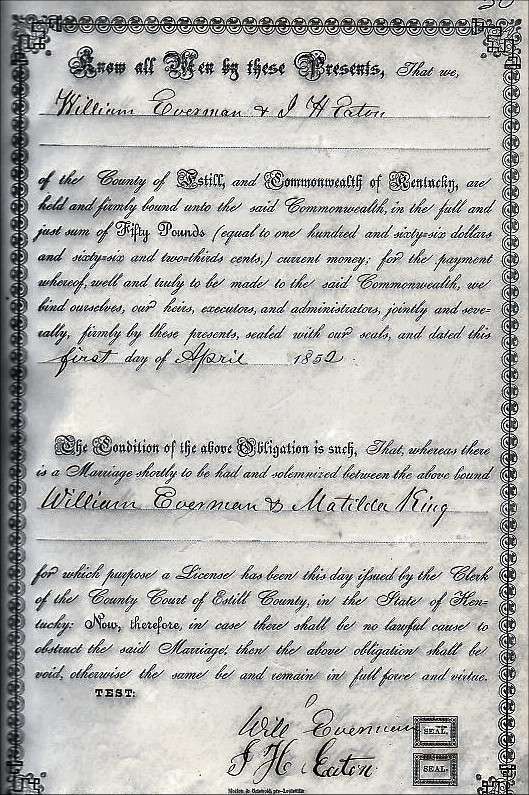 Know all Men by these Presents, That we,
William Everman & J H Eaton
of the County of Estill, and Commonwealth of Kentucky, are
held and firmly bound unto the said Commonwealth, in the full and
just sum of Fifty Pounds (equal to one hundred and sixty-six dollars
and sixty-six and two-thirds cents,) current money; for the payment
whereof, well and truly to be made to the said Commonwealth, we
bind ourselves, our heirs, executors, and administrators, jointly and seve-
rally, firmly by these presents, sealed with our seals, and dated this
first day of April 1852.
The Condition of the above Obligation is such, That, whereas there
is a Marriage shortly to be had and solemnized between the above bound
William Everman & Matilda King
for which purpose a License has been this day issued by the Clerk
of the County Court of Estill County, in the State of Ken-
tucky: Now, therefore, in case there shall be no lawful cause to
obstruct the said Marriage, then the above obligation shall be
void, otherwise the same be and remain in full force and virtue.
TEST:
Will Everman SEAL.
J H Eaton SEAL.